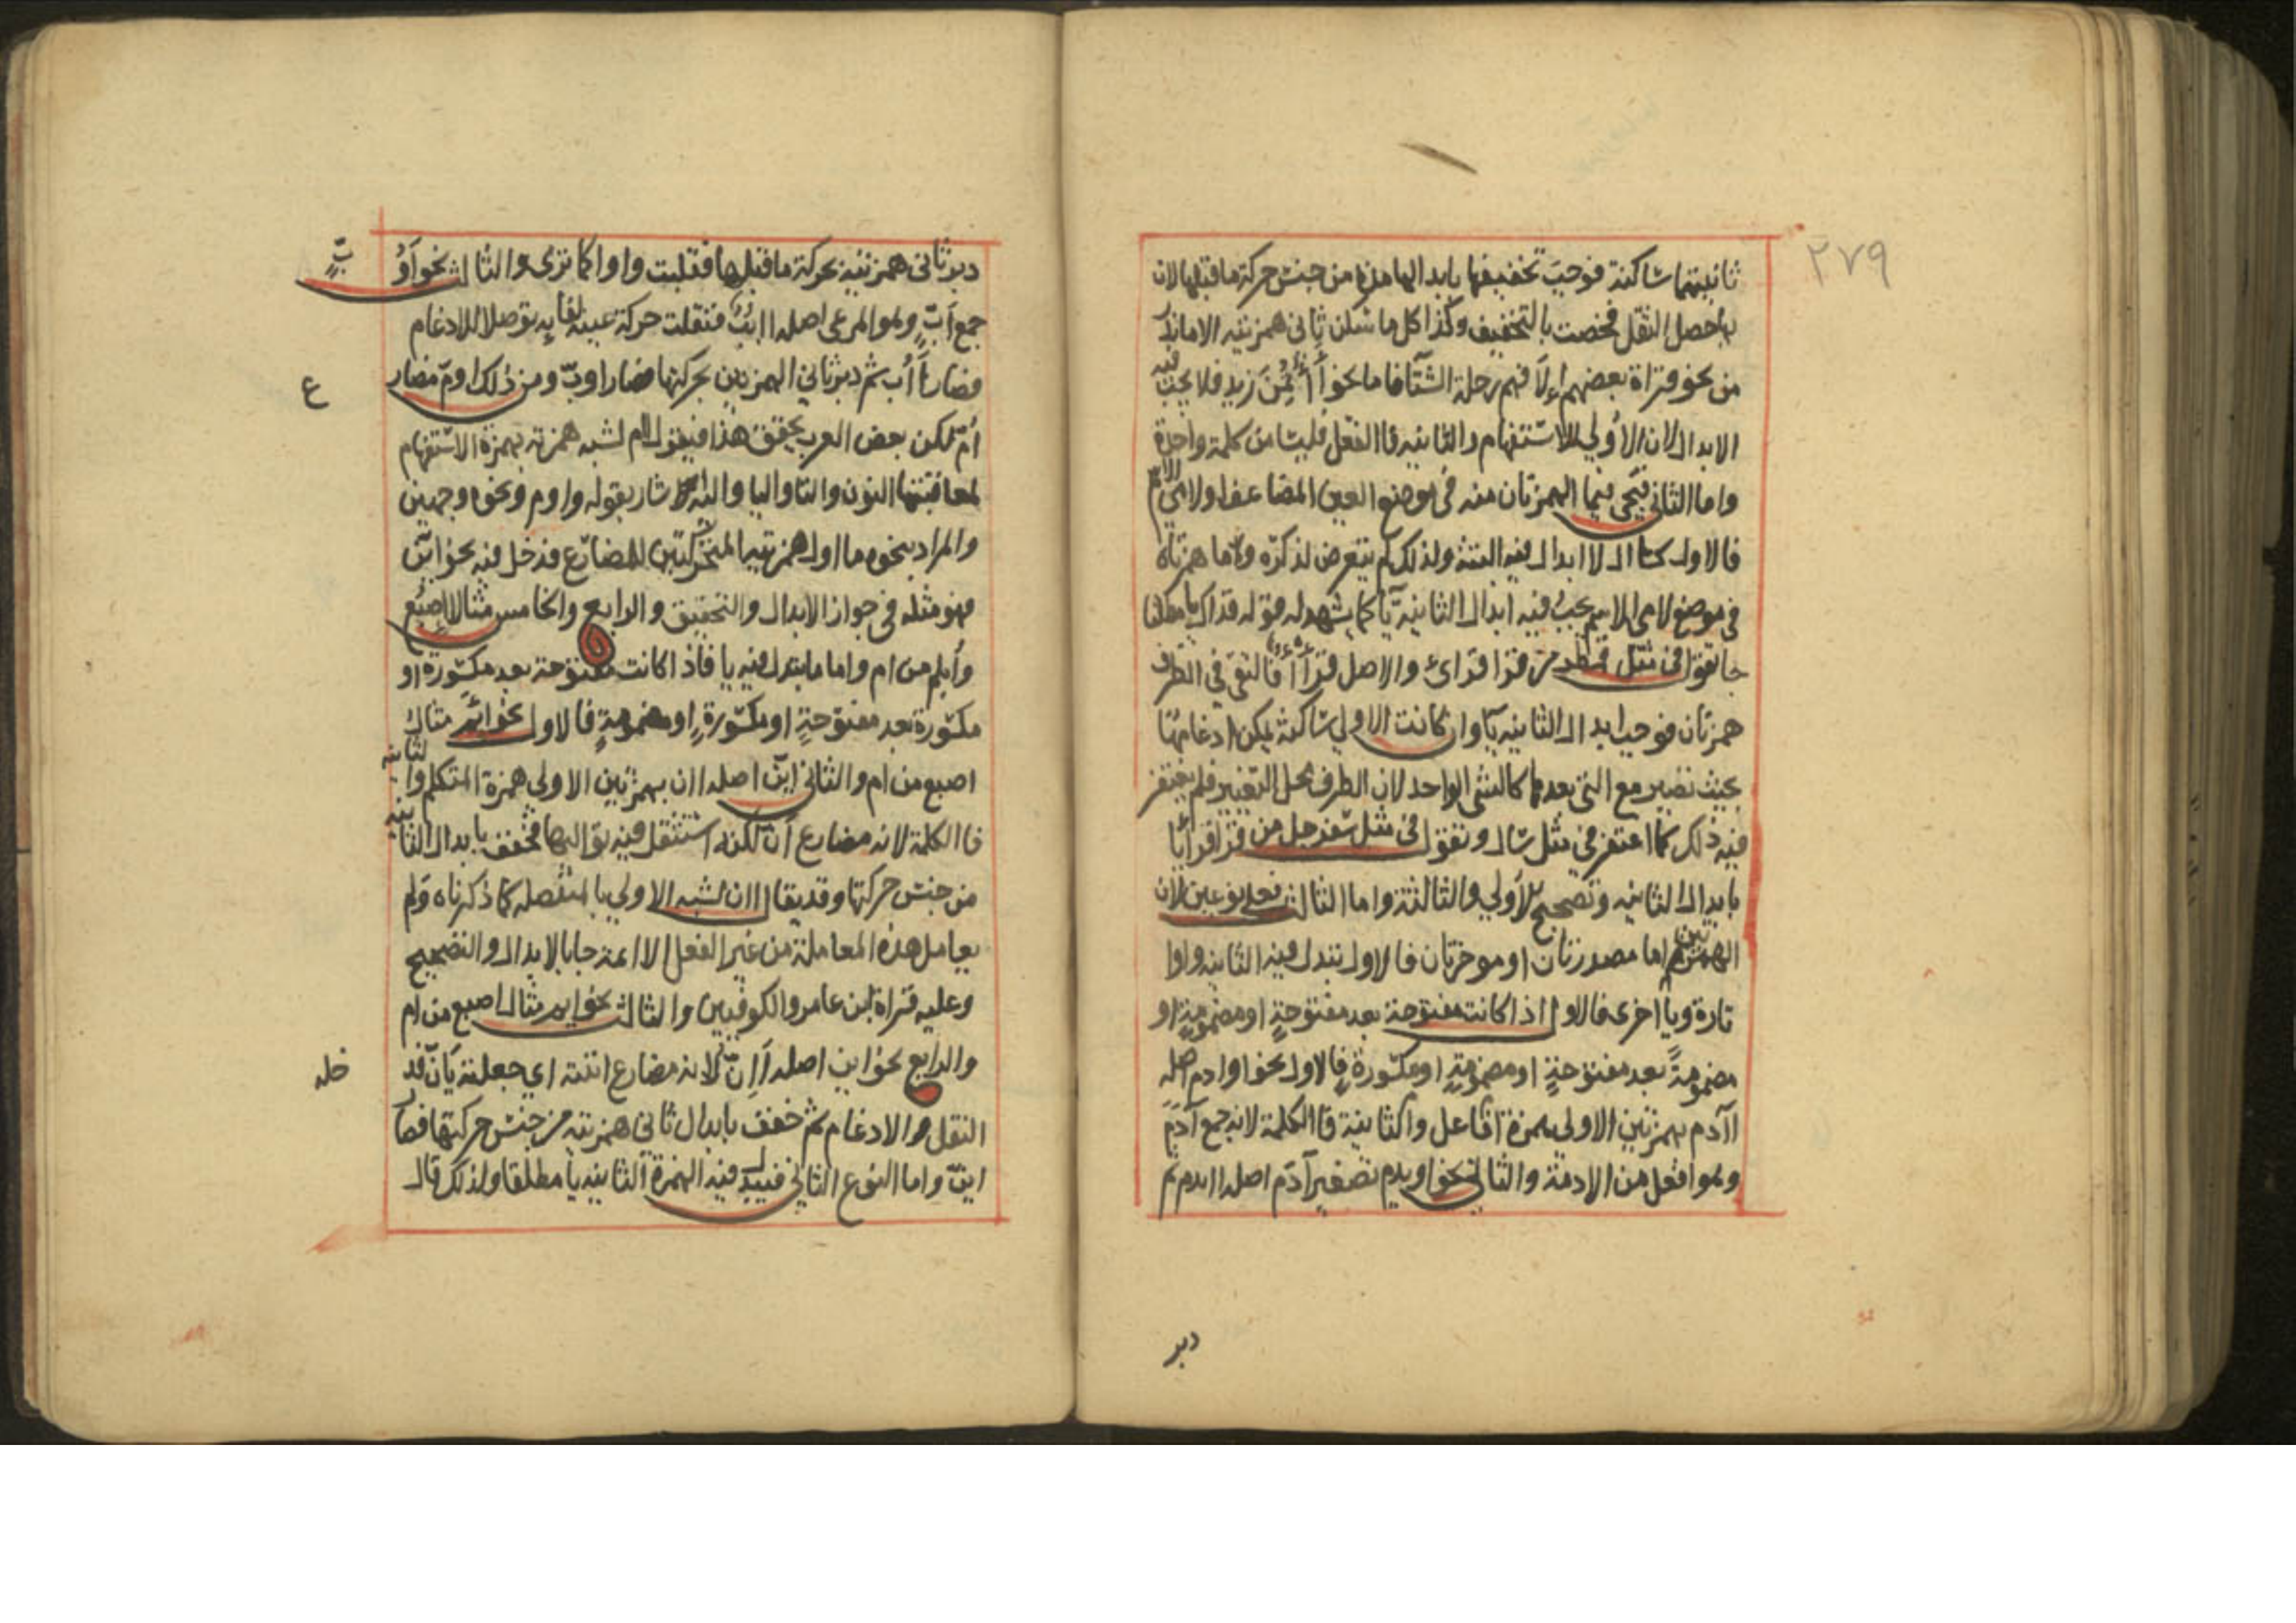 ٢٧٩
ثانيتهما ساكنة فوجب تخفيفها بابدالها مدة من جنس حركة ما قبلها لان
بها حصل الثقل فخصت بالتخفيف وكذا كل ما سكن ثاني همزتيه الا ما ندر
من نحو قراة بعضهم إءلافهم رحلة الشتا فاما نحو أأتمن زيد فلا يجب فيه
الابدال لان الاولي للاستفهام والثانيه فا الفعل فليسا من كلمة واحدة
واما الثاني فيجي فيما الهمزتان منه في موضع العين المضاعف او لامي الاسم
فالاول كسال لا ابدال فيه البتة ولذلك لم يتعرض لذكره واما همزتاه
في موضع لامي الاسم يجب فيه ابدال الثانية يا كما يشهد له قوله فذاك يا مطلقا
جا تقول في مثل قمطر من قرا قراي والاصل قرأأ فالتقي في الطرف
همزتان فوجب ابدال الثانيه يا وان كانت الاولي ساكنة يمكن ادغامها
بحيث تصير مع التي بعدها كالشي الواحد لان الطرف محل التغيير فلم يغتفر
فيه ذلك كما اغتفر في مثل سال وتقول في مثل سفرجل من قرا قرايا
بابدال الثانيه وتصحيح الاولي والثالثة واما الثالث فعلي نوعين لان
الهمزتين اما مصدرتان او موخرتان فالاول تبدل فيه الثانيه واوا
تارة ويا اخري فالاول اذا كانت مفتوحة بعد مفتوحة او مضمومة او
مضمومة بعد مفتوحة او مضمومة او مكسورة فالاول نحو اوادم اصله
اآدم بهمزتين الاولي همزة افاعل والثانية فا الكلمة لانه جمع آدم
وهو افعل من الادمة والثاني نحو اويدم تصغير آدم اصله اايدم ثم
دبر
دبر ثاني همزتيه بحركة ما قبلها فقلبت واوا كما تري والثالث نحو أَوُبّ
جمع أَبّ وهو المرعي اصله اابب فنقلت حركة عينه لفايه توصلا للادغام
فصار أأُب ثم دبر ثاني الهمزتين بحركتها فصار اوبّ ومن ذلك اومّ مضارع
أمّ لكن بعض العرب يحقق هذا فيقول اام لشبه همزته بهمزة الاستفهام
لمعاقبتها النون والتا واليا واليه اشار بقوله واوم ونحوه وجهين
والمراد بنحوه ما اول همزتيه المتحركتين للمضارع فدخل فيه نحو اين
فهو مثله في جواز الابدال والتحقيق والرابع والخامس مثال اصبع
وأبلم من ام واما ما يبدل فيه يا فاذا كانت مفتوحة بعد مكسورة او
مكسورة بعد مفتوحة او مكسورة او مضمومة فالاول نحو ايم مثال
اصبع من ام والثاني اين اصله اان بهمزتين الاولي همزة المتكلم والثانيه
فا الكلمة لانه مضارع أنّ لكنه استثقل فيه تواليها فخفف بابدال الثانيه
من جنس حركتها وقد يقال اان لشبه الاولي بالمنفصله كما ذكرناه ولم
يعامل هذه المعاملة من غير الفعل الا ائمة جا بالابدال والتصحيح
وعليه قراة ابن عامر والكوفيين والثالث نحو ايم مثال اصبع من ام
والرابع نحو اين اصله أَإِنّ لانه مضارع اننته اي جعلته يان فدخله
النقل والادغام ثم خفف بابدال ثاني همزتيه من جنس حركتها فصار
اين واما النوع الثاني فتبدل فيه الهمزة الثانيه يا مطلقا ولذلك قال